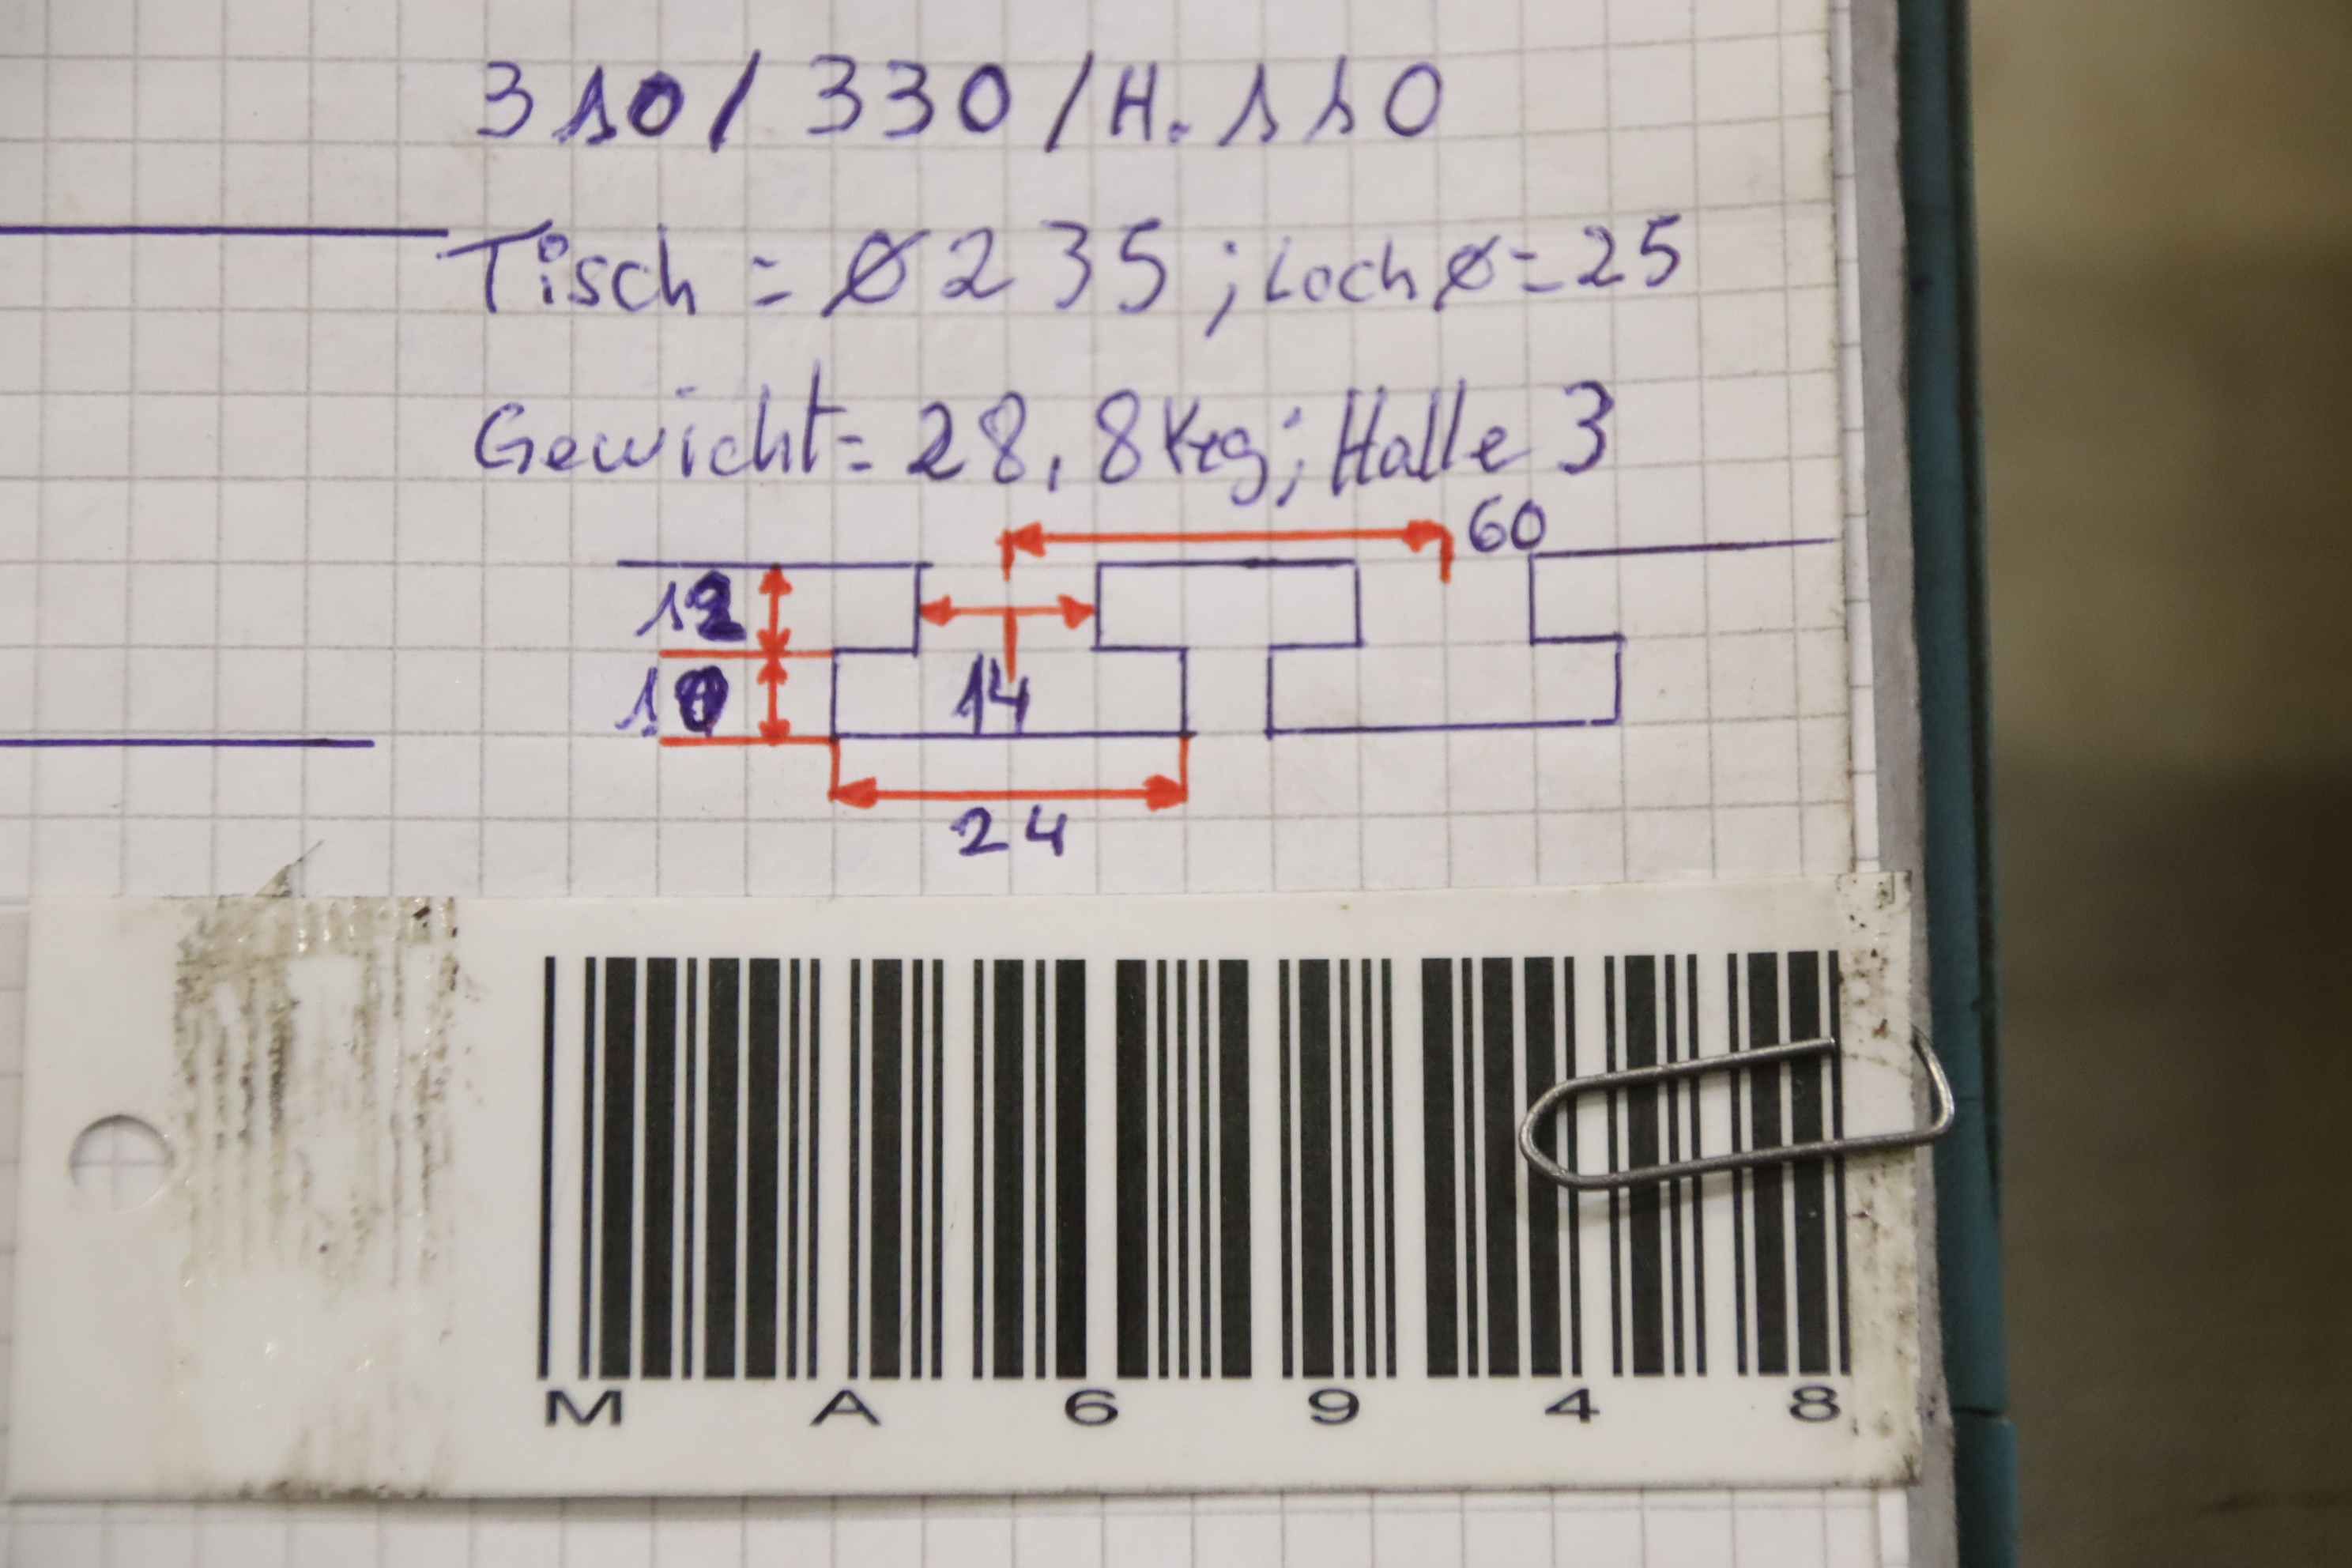 310/ 330/H.110
Tisch = Ø235; Loch Ø=25
Gewicht= 28,8Kg; Halle 3
60
12
10
14
24
MA6948